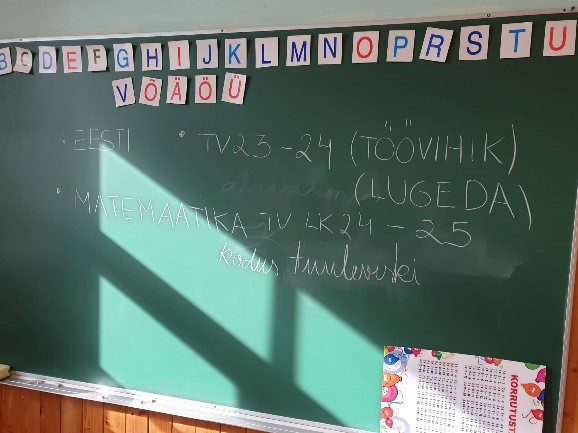 B C D E F G H I J K L M N O P R S T U
V Õ Ä Ö Ü
• EESTI • TV 23-24 (TÖÖVIHIK)
(LUGEDA)
• MATEMAATIKA TV LK 24 - 25
kodus tuuleveski
KORRUTUST